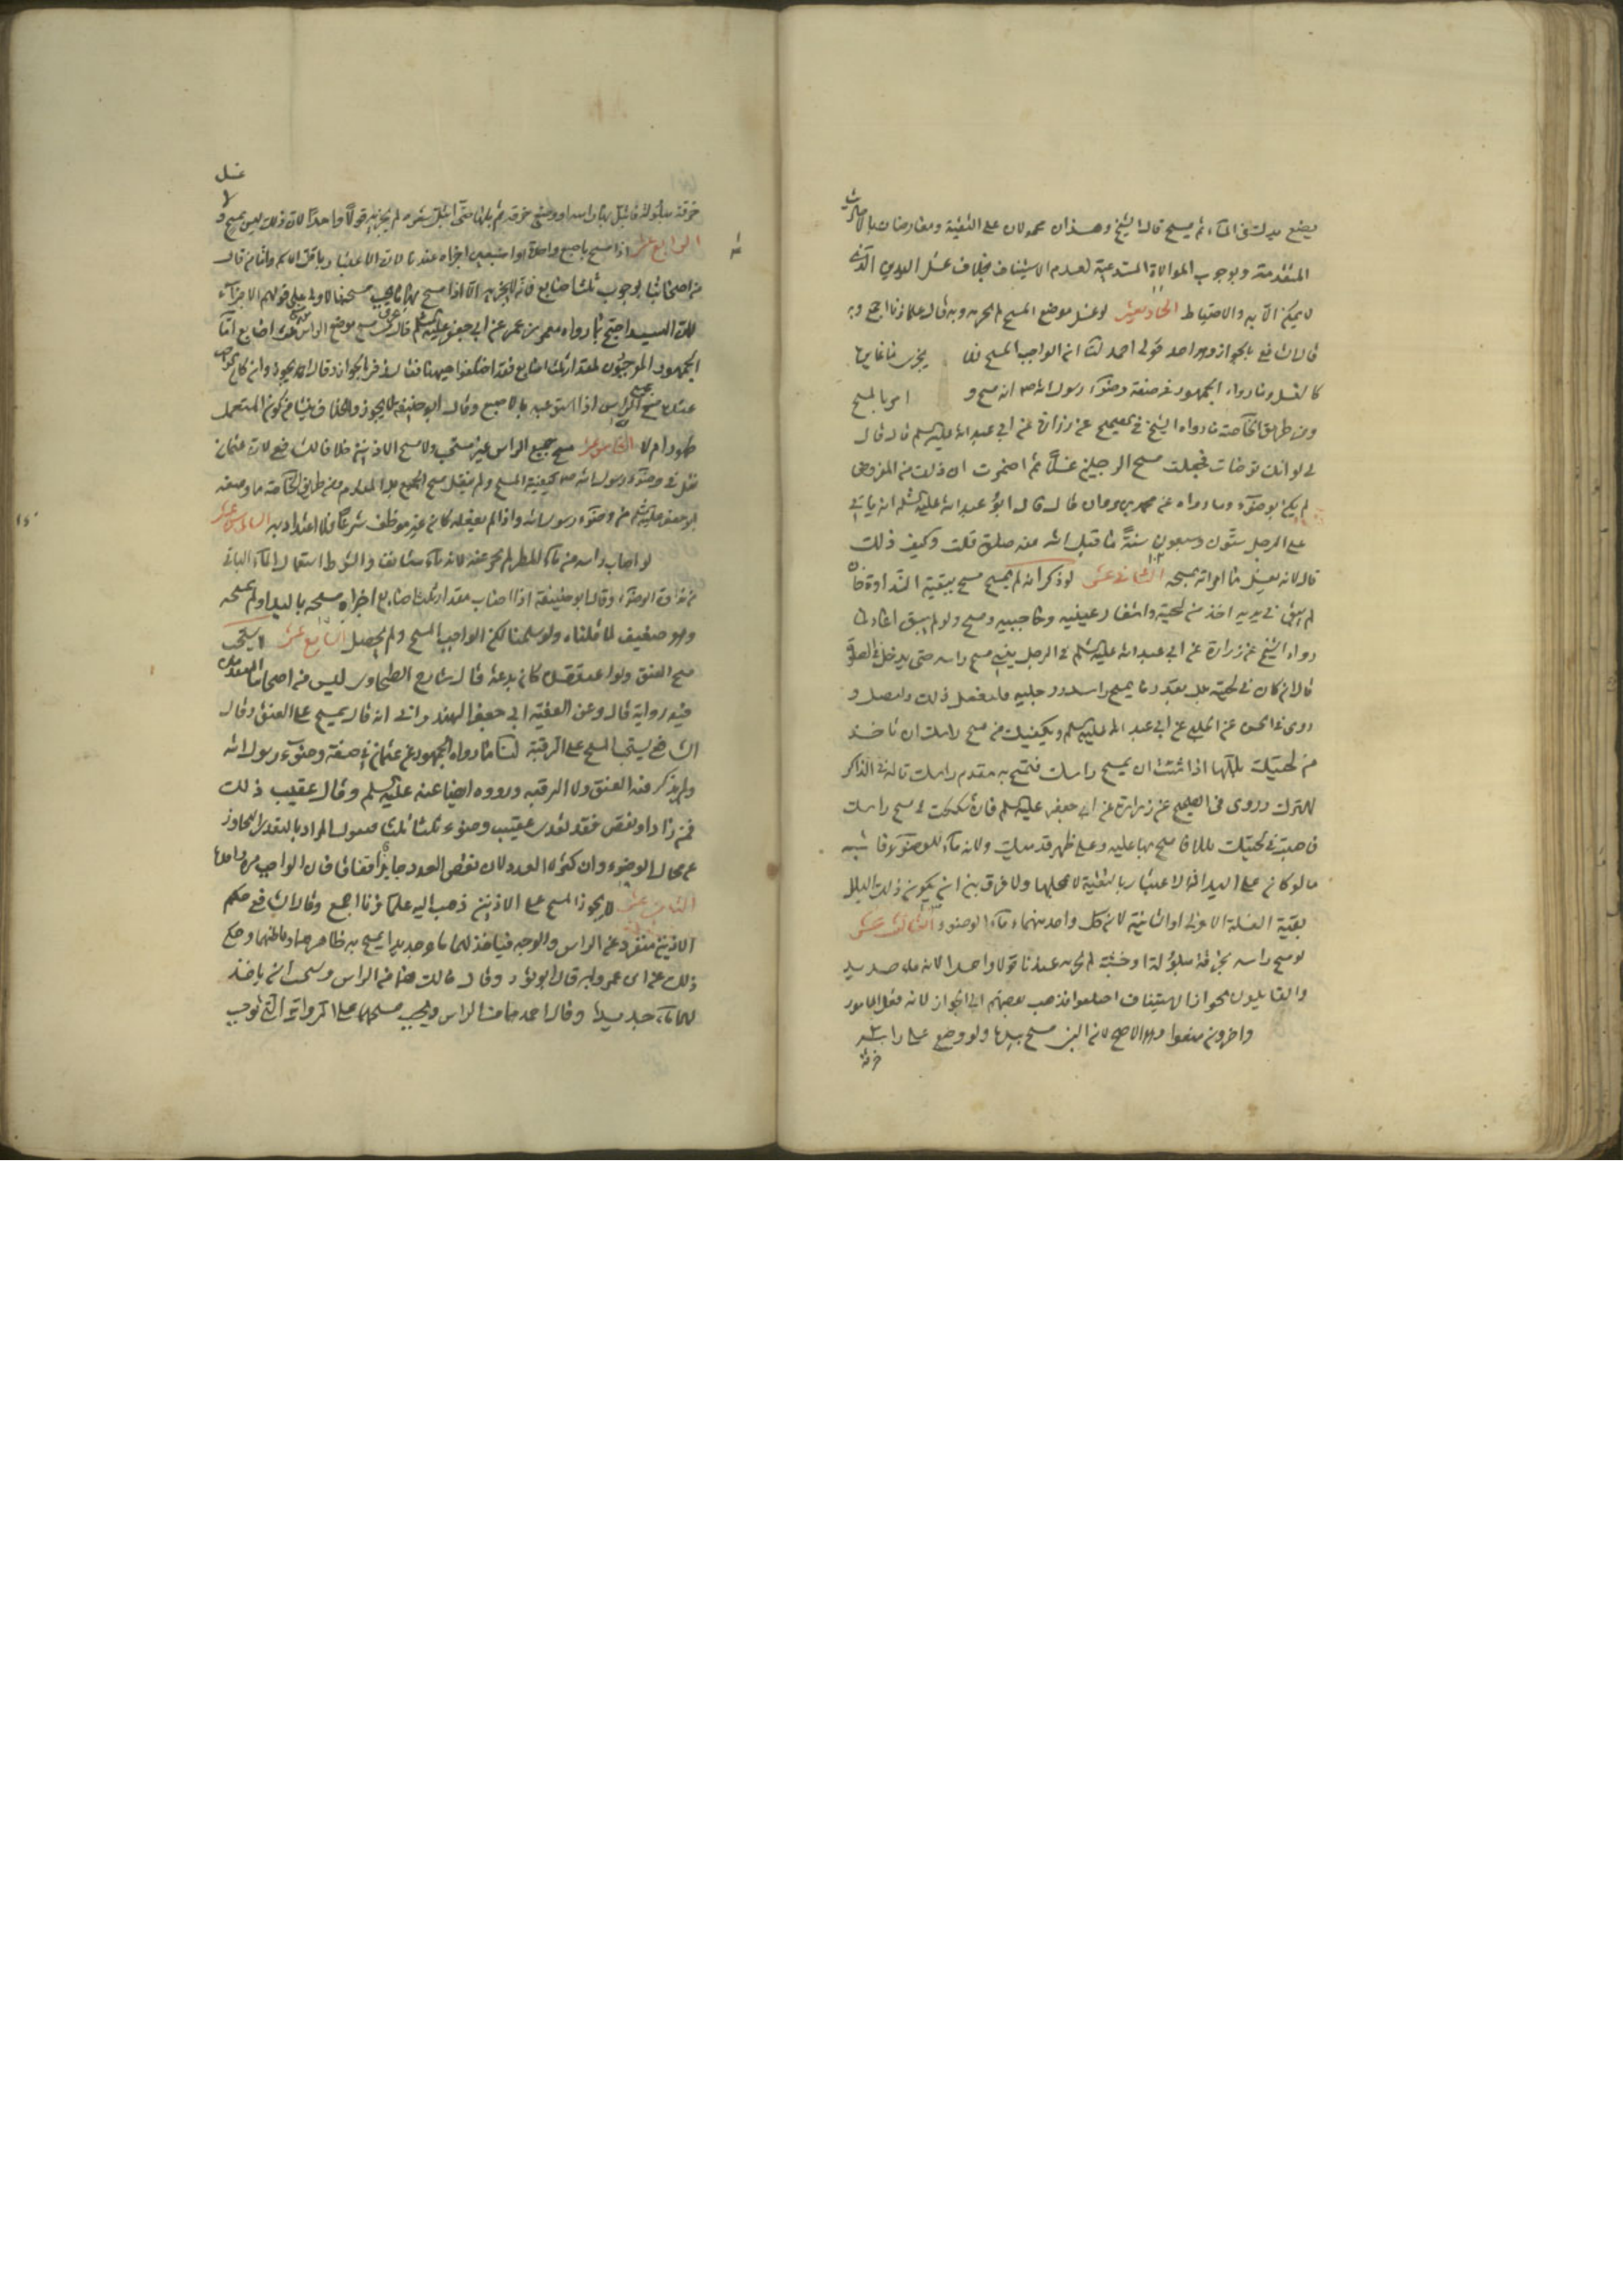 يضع يديه في الماء ثم يمسح قال الشيخ وهذان محمولان على التقية ومعارضان بالاحاديث
المتقدمة وبوجوب الموالاة المستدعية لعدم الاستيناف بخلاف غسل اليدين الذي
لا يمكن الا به والاحتياط الحادي عشر لو غسل موضع المسح لم يجزيه وبه قال علماؤنا اجمع وبه
قال الشافعي بالجواز وهو احد قولي احمد لنا ان الواجب المسح فلا يجزى ما غايرها
كالغسل وما رواه الجمهور في صفة وضوء رسول الله ص انه مسح و امر بالمسح
ومن طريق الخاصة ما رواه الشيخ في الصحيح عن زرارة عن ابي عبد الله عليه السلم قال قال
لي لو انك توضات فجعلت مسح الرجلين غسلاً ثم اضمرت ان ذلك من المفروض
لم يكن بوضوء وما رواه عن محمد بن مروان قال قال ابو عبد الله عليه السلم انه ياتي
على الرجل ستون وسبعون سنةً ما قبل الله منه صلوة قلت وكيف ذلك
قال لانه يغسل ما امر الله بمسحه الثاني عشر لو ذكر انه لم يمسح مسح ببقية النداوة فان
لم يبق في يديه اخذ من لحيته واشفار عينيه وحاجبيه ومسح ولو لم يبق اعاد لما
رواه الشيخ عن زرارة عن ابي عبد الله عليه السلم في الرجل ينسى مسح راسه حتى يدخل في الصلوة
قال ان كان في لحيته بلل بقدر ما يمسح راسه ورجليه فليفعل ذلك وليصل و
روى في الحسن عن الحلبي عن ابي عبد الله عليه السلم ويكفيك من مسح راسك ان تاخذ
من لحيتك بللها اذا نسيت ان تمسح راسك فتمسح به مقدم راسك قاله في الذاكر
للترك وروى في الصحيح عن زرارة عن ابي جعفر عليه السلم فان شككت في مسح راسك
فاصبت في لحيتك بللا فامسح بها عليه وعلى ظهر قدميك ولانه ماء للوضوء فاشبه
ما لو كان على اليد اذ لا اعتبار بالبقية لا محلها ولا فرق بين ان يكون ذلك البلل
بقية الغسلة الاولى او الثانية لان كل واحد منهما ماء الوضوء الثالث عشر
لو مسح راسه بخرقة مبلولة او خشبة لم يجزيه عندنا قولا واحدا لانه ماء جديد
والقايلون بجواز الاستيناف اختلفوا فذهب بعضهم الى الجواز لانه فعل المامور
واخرون منعوا وهو الاصح لان النبي مسح بيده ولو وضع على راسه
خرقة
غسل
خرقة مبلولة فابتل بها راسه او وضع خرقة ثم بلها حتى ابتل شعره لم يجزيه قولاً واحداً لان ذلك ليس بمسح ولا
الرابع عشر اذا مسح باصبع واحدة او اصبعين اجزاه عندنا لان الاعتبار باقل الاسم واما من قال
من اصحابنا بوجوب ثلث اصابع فانه لا يجزيه الا اذا مسح بها ما يجب مسحه
للسيد احتج بما رواه معمر بن عمر عن ابي جعفر عليه السلم قال يجزي من مسح موضع الراس ثلث اصابع اما
الجمهور الموجبون لمقدار ثلث اصابع فقد اختلفوا هيهنا فقال زفر بالجواز وقال انه يجوز وان كان يوجب
عنده مسح جميع الراس اذا استوعبه بالاصبع وقال ابو حنيفة لا يجوز والخلاف ينشا من كون المستعمل
طهورا ام لا الخامس عشر مسح جميع الراس غير مستحب ولا مسح الاذنين خلافا للشافعي لان عثمان
نقل في وضوء رسول الله ص كيفية المسح ولم ينقل مسح الجميع ومن طريق الخاصة ما وصفه
ابو جعفر عليه السلم من وضوء رسول الله واذا لم يفعله كان غير موظف شرعاً فلا اعتداد به السادس عشر
لو اصاب راسه من ماء المطر لم يجز عنه لانه ماء مستانف والشرط استعمال الماء الباقي
من نداوة الوضوء وقال ابو حنيفة اذا اصاب مقدار ثلث اصابع اجزاه مسحه باليد او لم يمسحه
وهو ضعيف لما قلناه ولو سلمنا لكن الواجب المسح ولم يحصل السابع عشر لا يستحب
مسح العنق ولو اعتقد كان بدعة قال شارح الطحاوى ليس من اصحابنا المتقدمين
فيه رواية قال وعن الفقيه ابي جعفر الهندواني انه قال يمسح على العنق وقال
الشافعي يستحب المسح على الرقبة لنا ما رواه الجمهور عن عثمان في صفة وضوء رسول الله
ولم يذكر فيه العنق ولا الرقبة ورووه ايضا عنه عليه السلم وقال عقيب ذلك
فمن زاد او نقص فقد تعدى عقيب وضوء ثلثا ثلثا فيكون المراد بالتعدى التجاوز
عن محال الوضوء وان كثرة العدد لان نقص العدد جايز اتفاقا فان الواجب مرة واحدة
الثامن عشر لا يجوز المسح على الاذنين ذهب اليه علماؤنا اجمع وقال الشافعي حكم
الاذنين منفرد عن الراس والوجه فياخذ لهما ماء جديدا يمسح به ظاهرهما وباطنهما وحكى
ذلك عن ابن عمر وبه قال ابو ثور وقال مالك هما من الراس ويستحب ان ياخذ
لهما ماء جديدا وقال احمد هما من الراس ويجب مسحهما على الرواية التي توجب